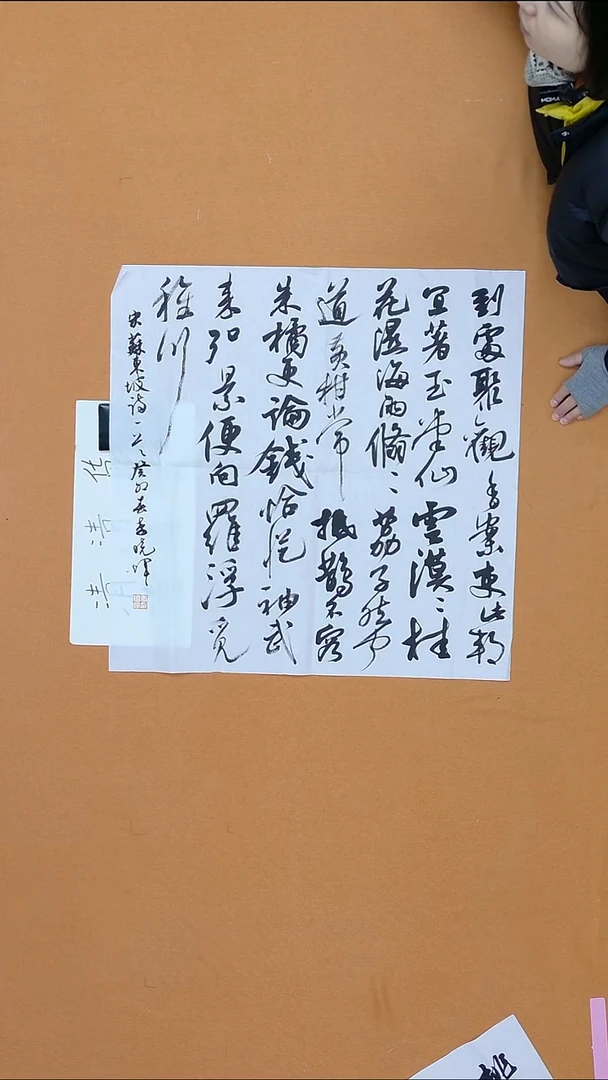 到處聚觀香案吏此邦
宜著玉堂仙雲漠〻桂
花濕海雨翛〻荔子然聞
道黃柑常抵鵲不容
朱橘更論錢恰從神武
來弘景便向羅浮覓
稚川
宋蘇東坡詩一首癸卯春李曉暉